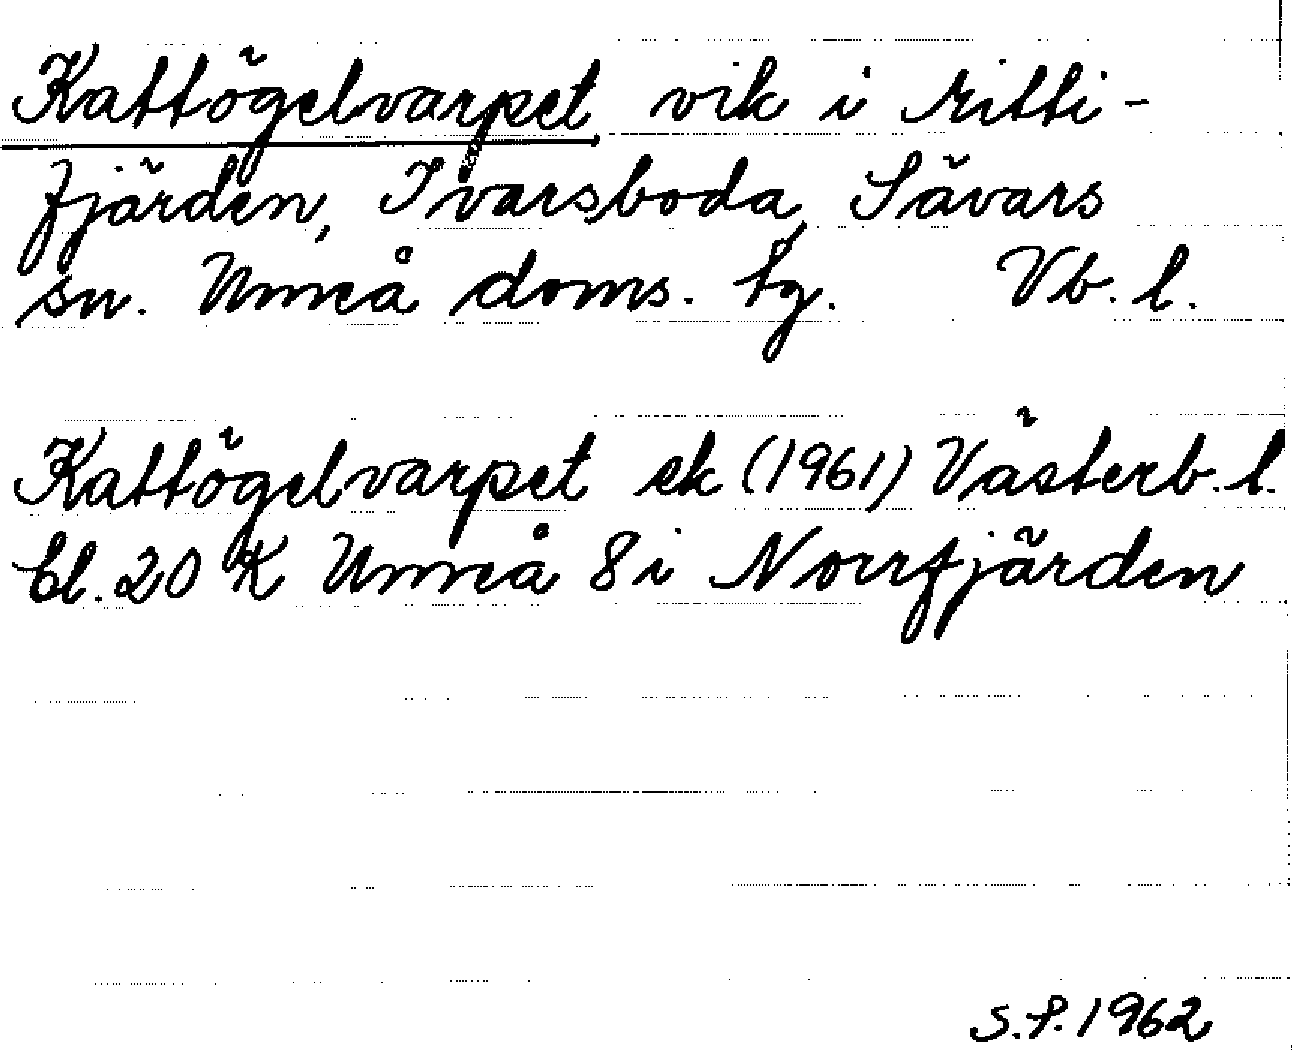 Kattögelvarpet vik i Mitti-
fjärden, Ivarsboda, Sävars
sn. Umeå doms. tg. Vb. l.
Kattögelvarpet ek (1961) Västerb. l.
bl. 20 K Umeå 8 i Norrfjärden
S.P. 1962